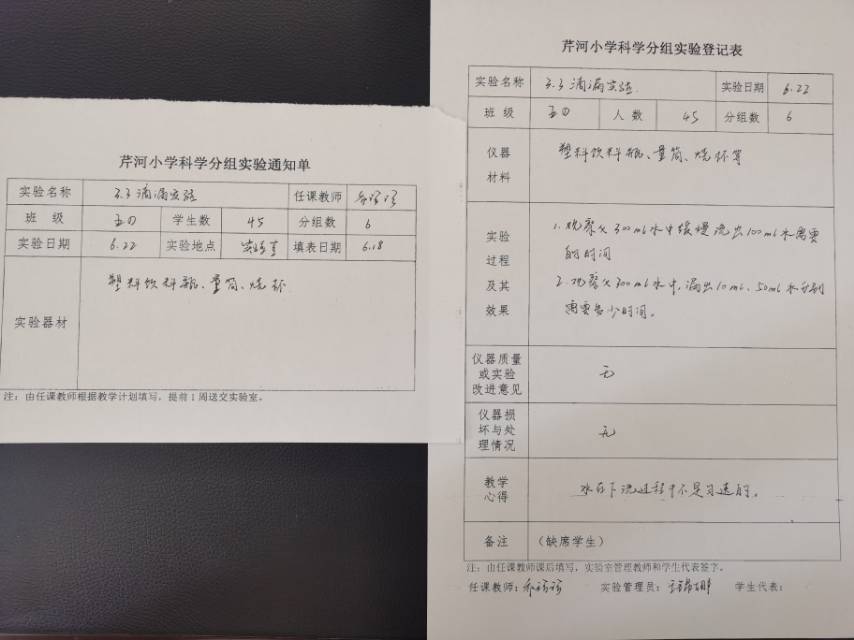 芹河小学科学分组实验通知单
实验名称 3.3滴漏实验 任课教师
班 级 五(1) 学生数 45 分组数 6
实验日期 6.22 实验地点 实验室 填表日期 6.18
实验器材 塑料饮料瓶、量筒、烧杯
注：由任课教师根据教学计划填写，提前1周送交实验室。
芹河小学科学分组实验登记表
实验名称 3.3滴漏实验 实验日期 6.22
班 级 五(1) 人 数 45 分组数 6
仪器
材料
塑料饮料瓶、量筒、烧杯等
实验
过程
及其
效果
1.观察义300mL水中缓慢流出100mL水需要
的时间
2.观察义300mL水中，漏出10mL、50mL水分别
需要多少时间。
仪器质量
或实验
改进意见
无
仪器损
坏与处
理情况
无
教学
心得
水在下流过程中不是匀速的。
备注 （缺席学生）
注：由任课教师课后填写，实验室管理教师和学生代表签字。
任课教师： 实验管理员： 学生代表：